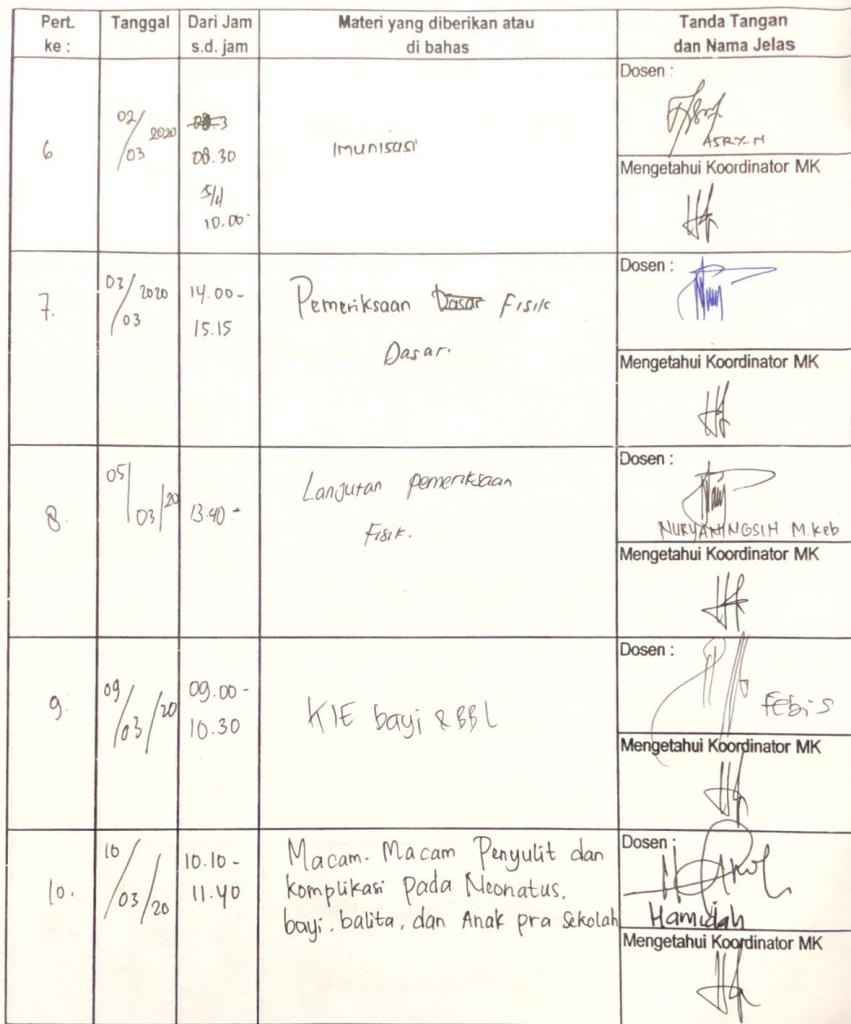 Pert. ke :
Tanggal
Dari Jam s.d. jam
Materi yang diberikan atau di bahas
Tanda Tangan dan Nama Jelas
6
02/03 2020
08.30
s/d
10.00
Imunisasi
Dosen :
ASRY-N
Mengetahui Koordinator MK
7.
03/03 2020
14.00-
15.15
Pemeriksaan Dasar Fisik
Dasar.
Dosen :
Mengetahui Koordinator MK
8.
05/03/20
13.40 -
Lanjutan pemeriksaan
Fisik.
Dosen :
NURYANINGSIH M.Keb
Mengetahui Koordinator MK
9.
09/03/20
09.00-
10.30
KIE bayi & BBL
Dosen :
FEBi S
Mengetahui Koordinator MK
10.
10/03/20
10.10 -
11.40
Macam-Macam Penyulit dan
komplikasi pada Neonatus,
bayi, balita, dan Anak pra Sekolah
Dosen :
Hamidah
Mengetahui Koordinator MK